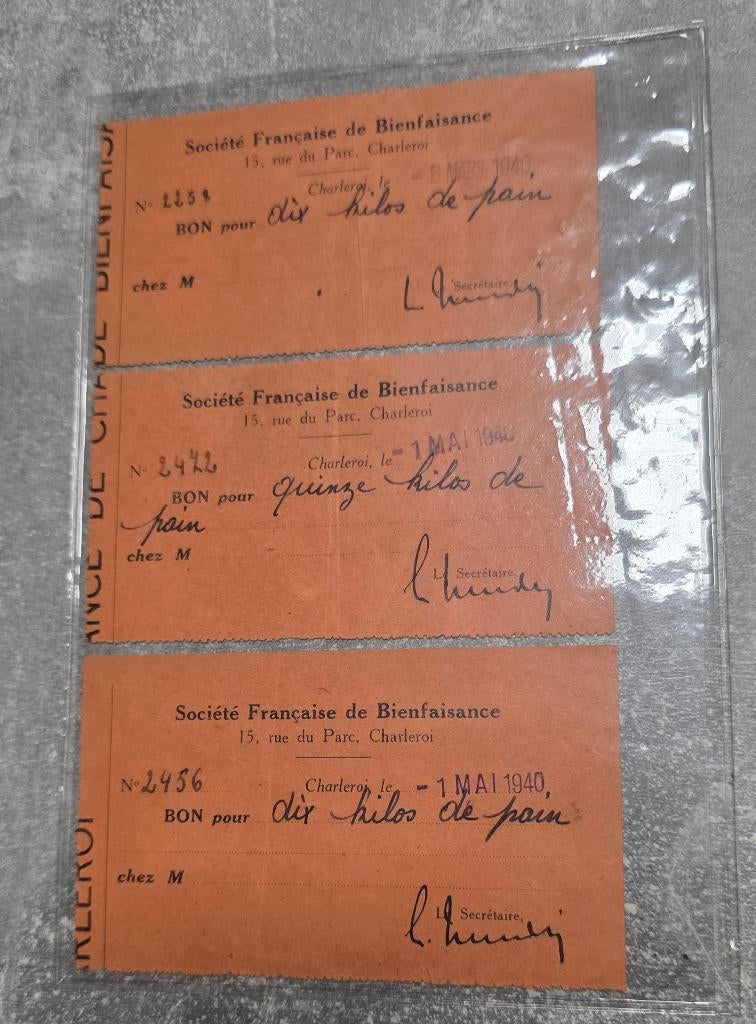 Société Française de Bienfaisance
15, rue du Parc, Charleroi
Charleroi, le - 8 MARS 1940
N° 2258
BON pour dix kilos de pain
chez M
Secrétaire,
Société Française de Bienfaisance
15, rue du Parc, Charleroi
Charleroi, le - 1 MAI 1940
N° 2472
BON pour quinze kilos de
pain
chez M
Le Secrétaire,
Société Française de Bienfaisance
15, rue du Parc, Charleroi
N° 2456
Charleroi, le - 1 MAI 1940
BON pour dix kilos de pain
chez M
Le Secrétaire,